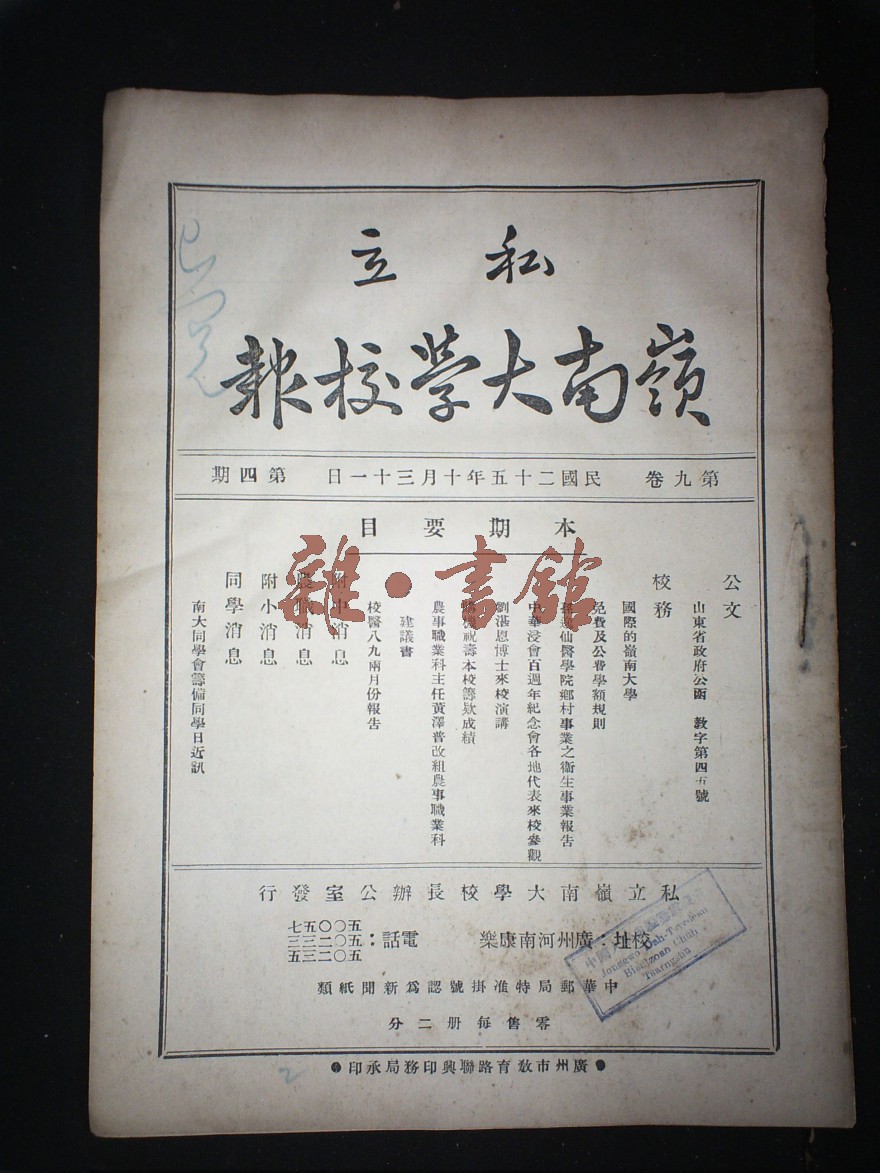 私立
嶺南大學校報
第九卷 民國二十五年十月三十一日 第四期
本期要目
公文
山東省政府公函 教字第四五號
校務
國際的嶺南大學
免費及公費學額規則
仙醫學院鄉村事業之衞生事業報告
中華浸會百週年紀念會各地代表來校參觀
劉湛恩博士來校演講
祝壽本校籌欵成績
農事職業科主任黃澤普改組農事職業科
建議書
校醫八九兩月份報告
附中消息
農職消息
附小消息
同學消息
南大同學會籌備同學日近訊
私立嶺南大學校長辦公室發行
校址：廣州河南康樂 電話：
五〇〇五七
五〇二三三
五〇二三五
中華郵局特准掛號認爲新聞紙類
零售每册二分
廣州市教育路聯興印務局承印
雜·書館
Tsarngshu
2